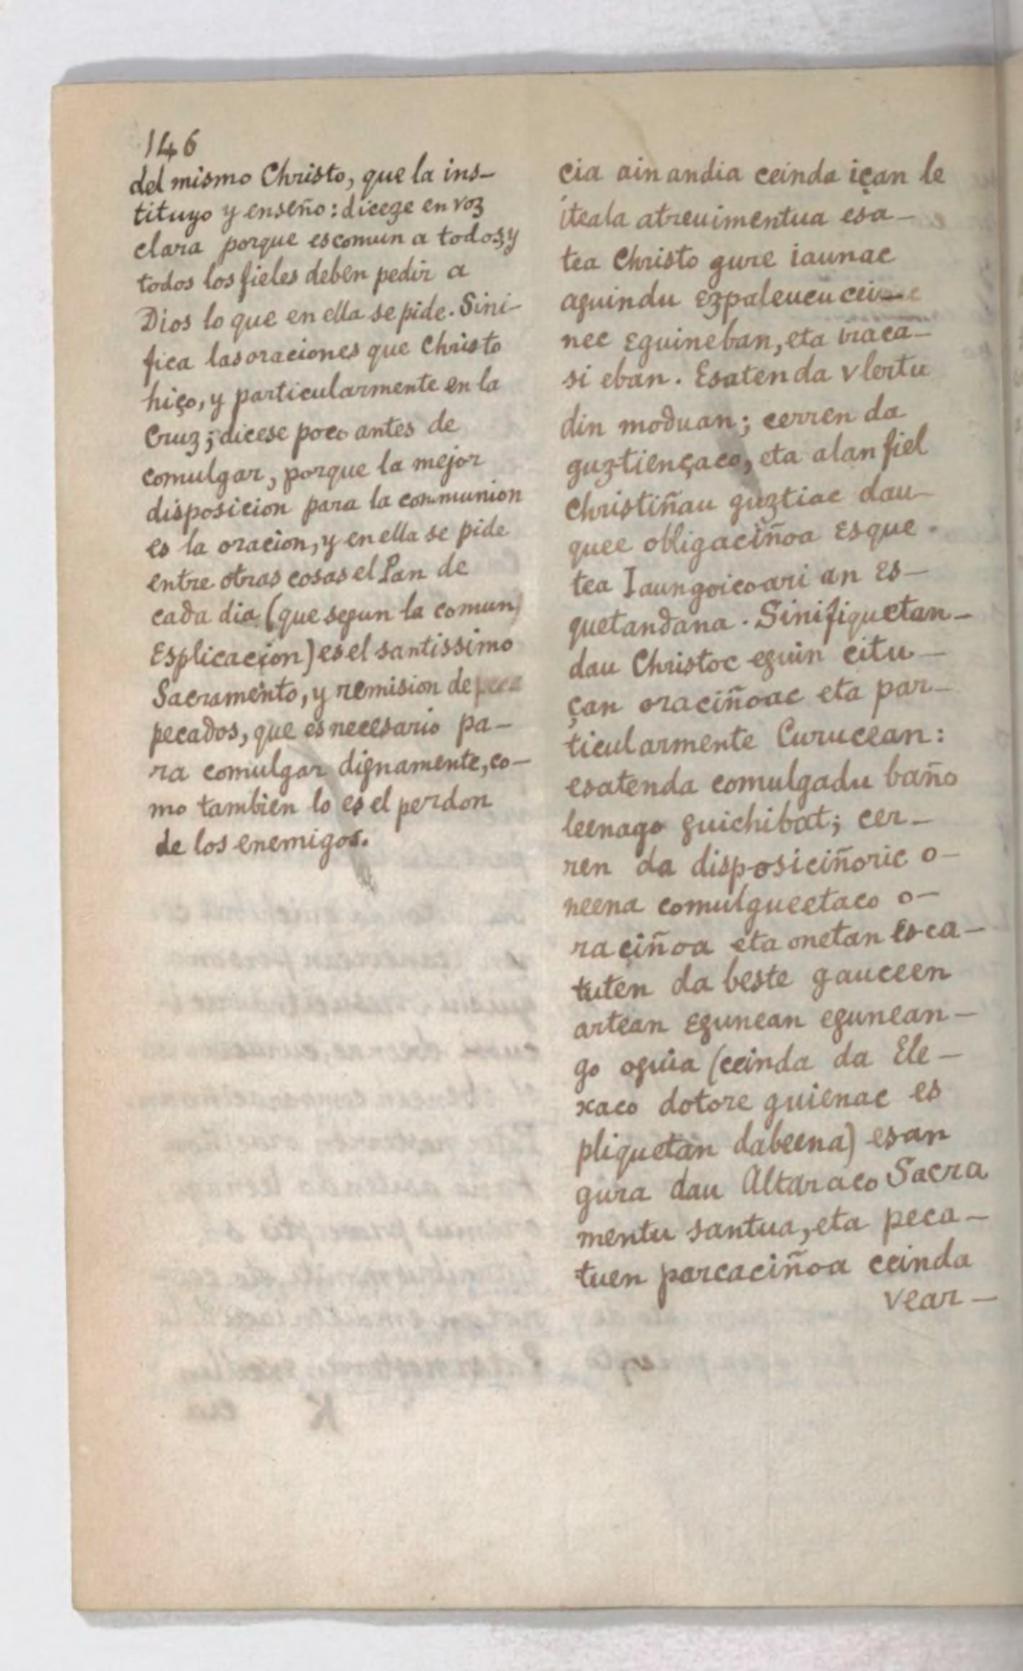 146
del mismo Christo, que la ins-
tituyo y enseño: diceze en voz
clara porque es comun a todos, y
todos los fieles deben pedir a
Dios lo que en ella se pide. Sini-
fica las oraciones que Christo
hiço, y particularmente en la
Cruz; dicese poco antes de
comulgar, porque la mejor
disposicion para la communion
es la oracion, y en ella se pide
entre otras cosas el Pan de
cada dia (que segun la comun
Esplicacion) es el santissimo
Sacramento, y remision de
pecados, que es necesario pa-
ra comulgar dignamente, co-
mo tambien lo es el perdon
de los enemigos.
cia ain andia ceinda içan le
iteala atreuimentua esa-
tea Christo gure iaunac
aguindu ezpaleucu
nec eguineban, eta iraca-
si eban. Esaten da vlertu
din moduan; cerren da
guztiençaco, eta alan fiel
Christiñau guztiac dau-
quee obligaciñoa esque-
tea Iaungoicoari an es-
quetandana. Sinifiquetan-
dau Christoc eguin citu-
çan oraciñoac eta par-
ticularmente Curucean:
esatenda comulgadu baño
leenago guichibat; cer-
ren da disposiciñoric o-
neena comulgueetaco o-
raciñoa eta onetan esca-
tuten da beste gauceen
artean egunean egunean-
go oguia (ceinda da Ele-
xaco dotore guienac es
pliquetan dabeena) esan
gura dau Altaraco Sacra
mentu santua, eta peca-
tuen parcaciñoa ceinda
vear-